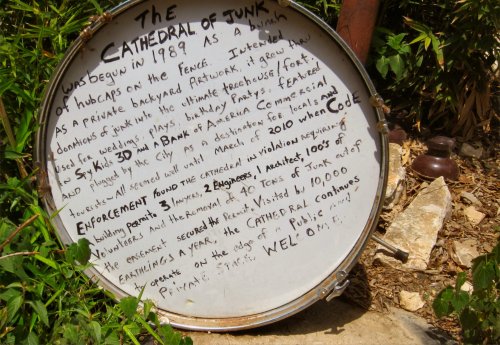 The
CATHEDRAL OF JUNK
was begun in 1989 as a
of hubcaps on the fence. Intended
as a private backyard artwork, it grew thru
donations of junk into the ultimate treehouse/fort,
used for weddings, plays, birthday partys, featured
in Spy Kids 3D and a BANK of America Commercial
and plugged by the City as a destination for locals and
tourists - All seemed well until March of 2010 when CODE
ENFORCEMENT found the cathedral in violation requiring
building permits. 3 lawyers, 2 Engineers, 1 Architect, 100's of
Volunteers and the removal of 40 tons of junk out of
the easement secured the permit. Visited by 10,000
EARTHLINGS A YEAR, the CATHEDRAL continues
to operate on the edge of a Public and
PRIVATE SPACE.